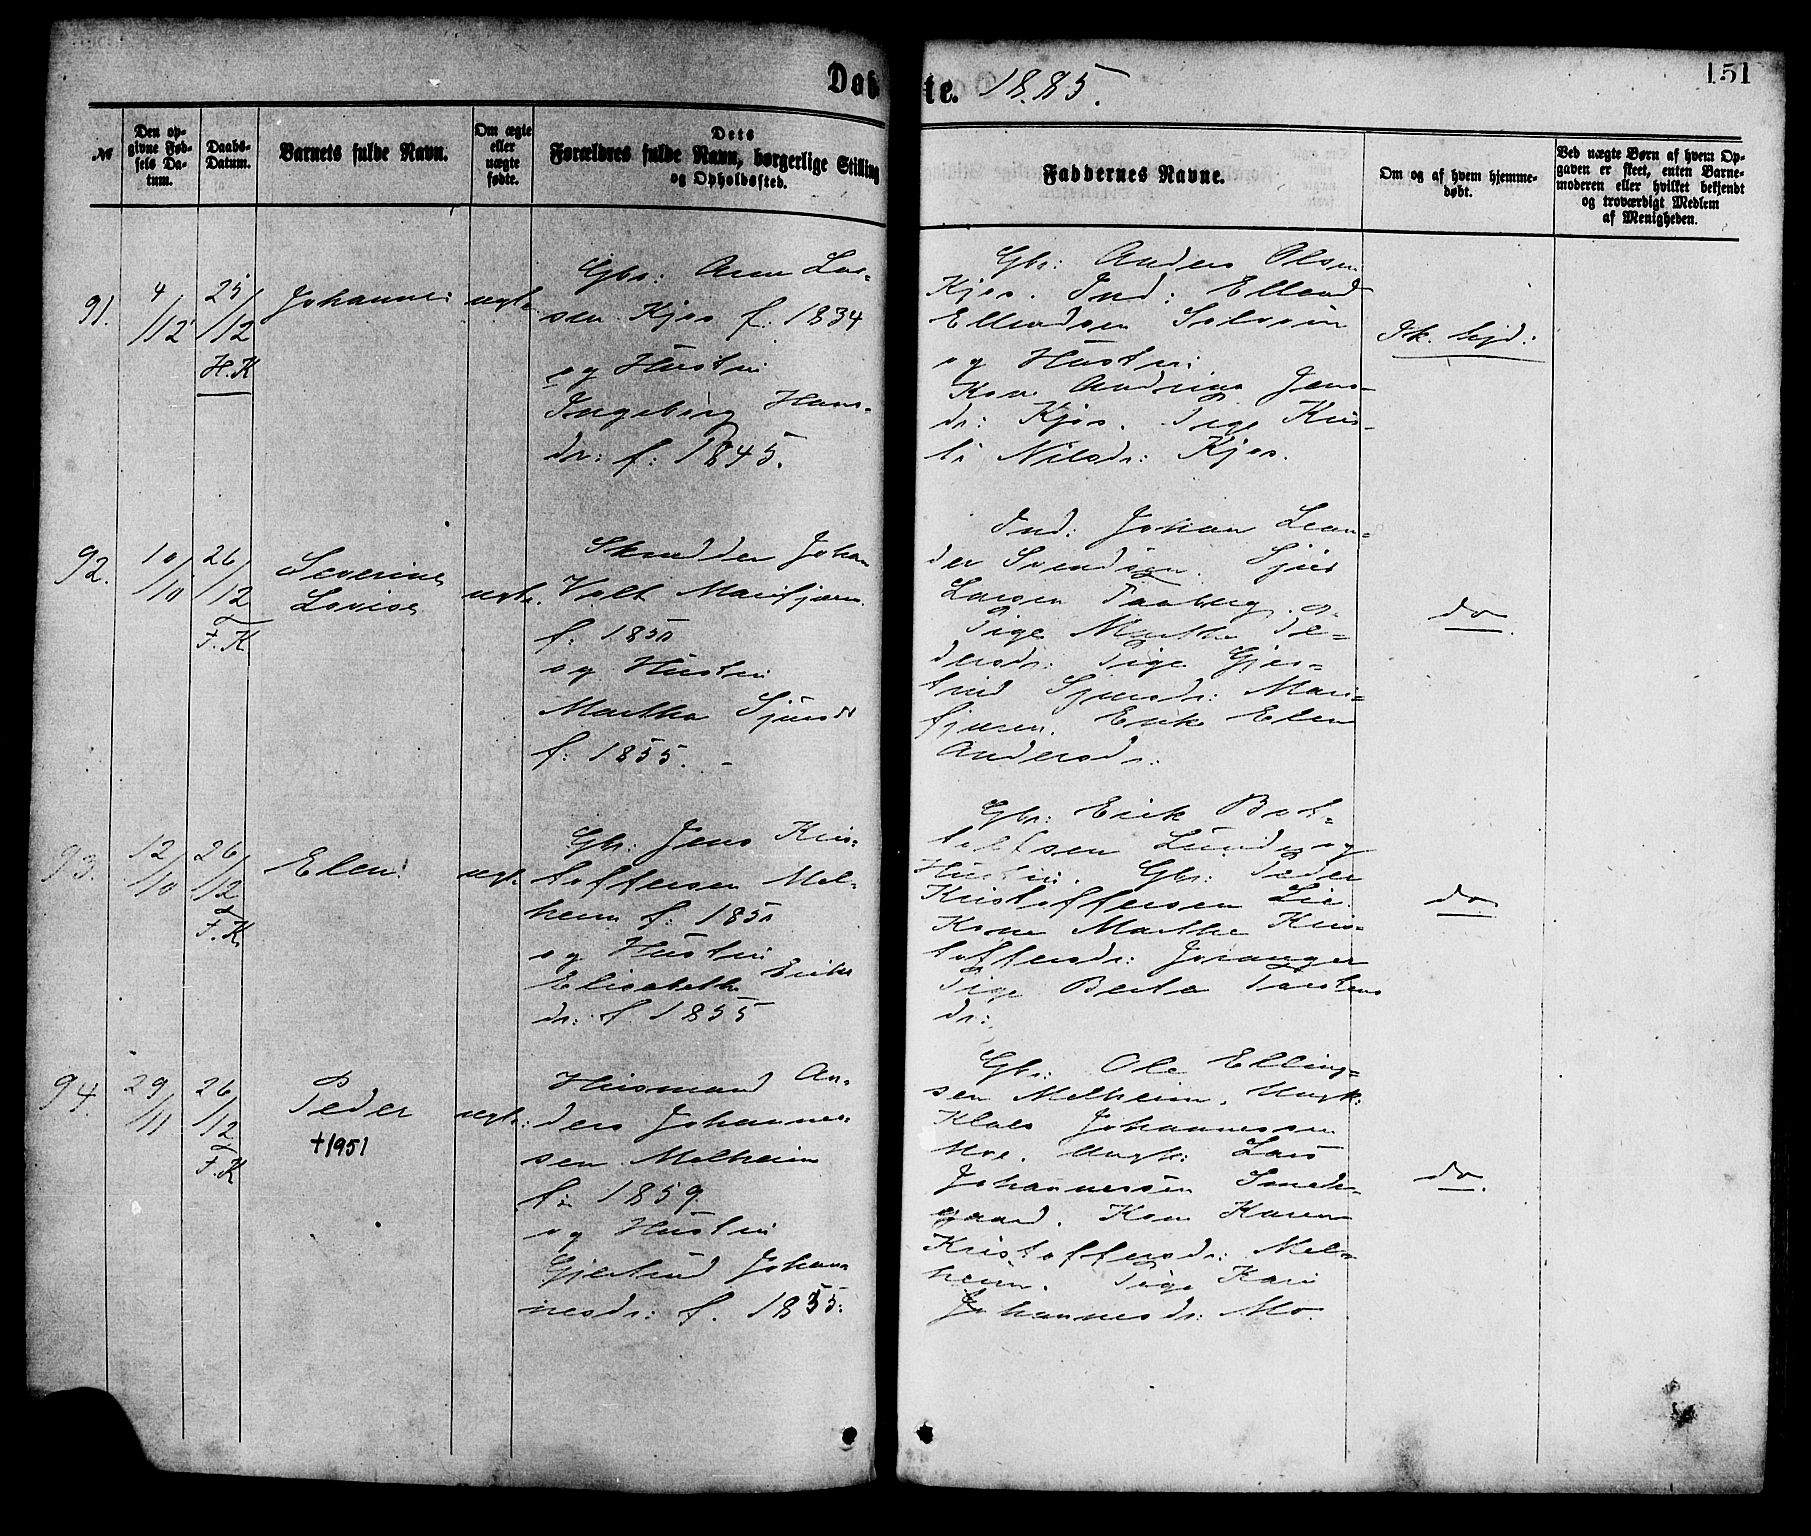 Døbte. 1885.
151
№
Den op-
givne Fød-
sels Da-
tum.
Daabs-
Datum.
Barnets fulde Navn.
Om ægte
eller
uægte
fødte.
Dets
Forældres fulde Navn, borgerlige Stilling
og Opholdssted.
Faddernes Navne.
Om og af hvem hjemme-
døbt.
Ved uægte Børn af hvem Op-
gaven er skeet, enten Barne-
moderen eller hvilket bekjendt
og troværdigt Medlem
af Menigheden.
91.
4/12
25/12
H.K
Johannes
ægte
Gbr: Arne Lar-
sen Kjos f: 1834
og Hustru
Ingeborg Hans-
dr: f: 1845.
Gbr: Anders Olsen
Kjos. Ind: Ellend
Ellendsen
og Hustru
Kone Andrine Jens-
dr: Kjos. Pige Kris-
ti Nilsdr: Kjos.
Ik. hjd:
92.
10/10
26/12
F.K
Severine
Lovise
ægte.
Skredder Johan
Volt Marifjæren
f: 1850
og Hustru
Martha Sjursdr
f: 1855.
Ind: Johan Lean-
der Svendsen. Sjur
Larsen Taaberg. og
Pige Marthe Pe-
dersdr: Pige Gjer-
trud Sjursdr: Mari-
fjæren. Enke Elen
Andersdr:
do.
93.
12/10
26/12
F.K.
Elen
ægt.
Gbr: Jens Kris-
toffersen Mel-
heim f: 1850
og Hustru
Elisabeth Eriks
dr: f. 1855
Gbr: Erik Bot-
tolfsen Lunde og
Hustru. Gbr: Peder
Kristoffersen Lie.
Kone Marthe Kris-
toffersdr: Joranger
Pige Berta Torstens
dr:
do.
94.
29/11
26/12
F.K
Peder
+1951
ægt:
Husmand An-
ders Johannes-
sen Melheim
f: 1859.
og Hustru
Gjertrud Johan
nesdr: f. 1855:
Gbr: Ole Elling-
sen Melheim. Ungk:
Klaes Johannessen
Moe. Ungk: Lars
Johannessen
gaard. Kone Karen
Kristoffersdr: Mel-
heim. Pige Kari
Johannesdr: Mo.
do.